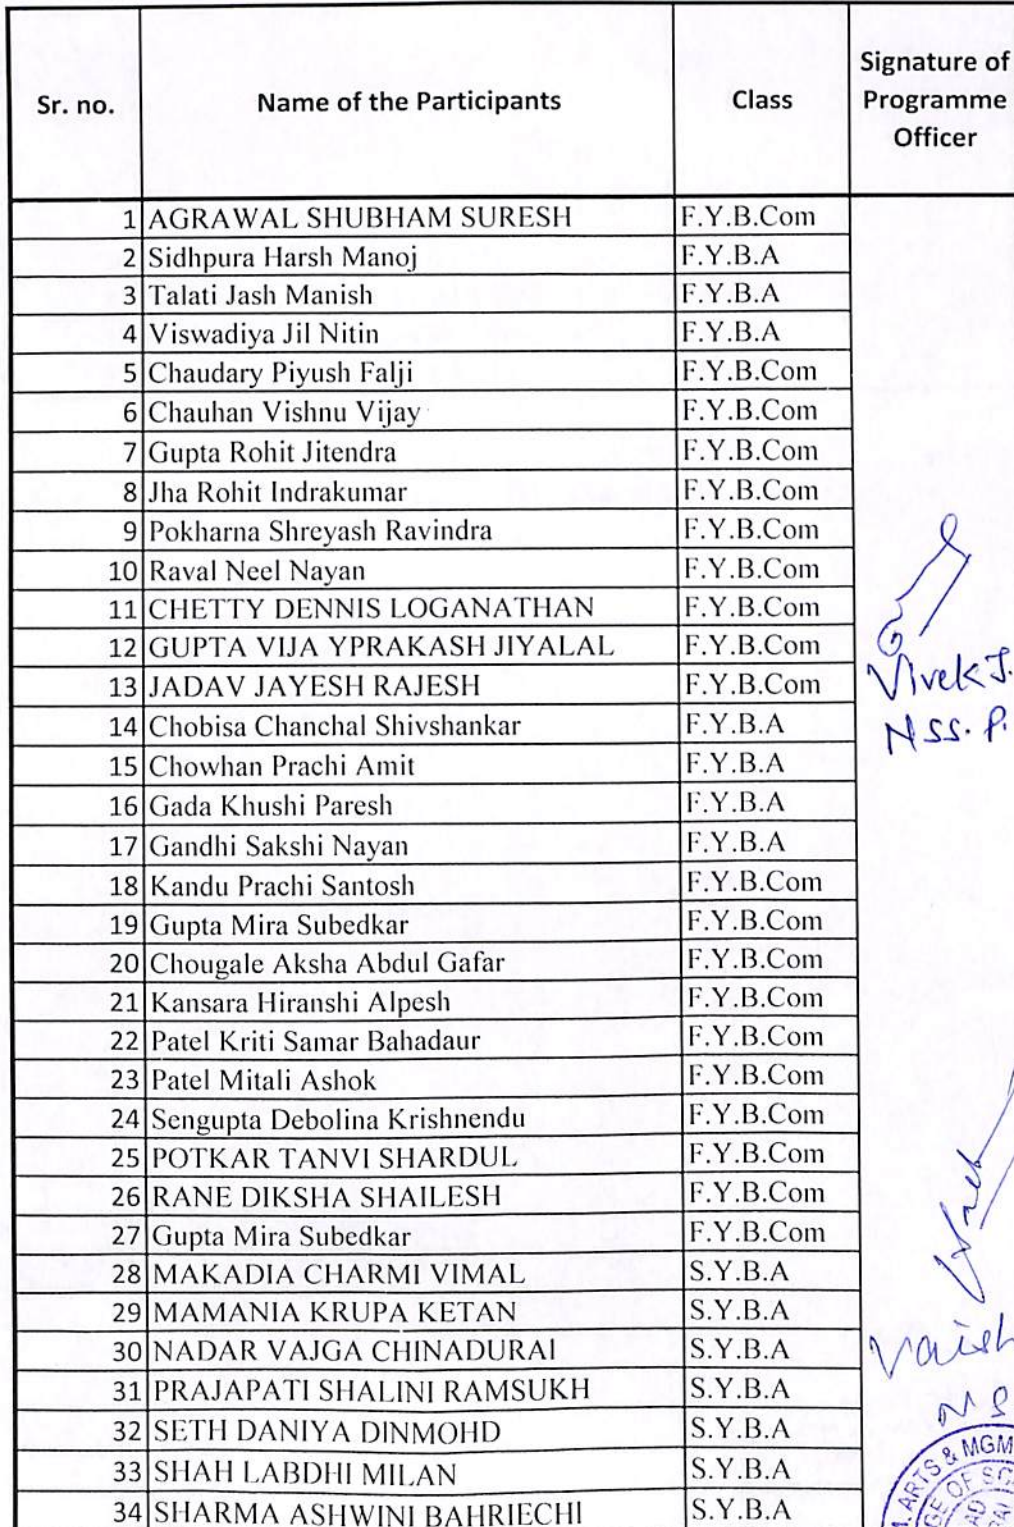 Sr. no. Name of the Participants Class Signature of Programme Officer
1 AGRAWAL SHUBHAM SURESH F.Y.B.Com
2 Sidhpura Harsh Manoj F.Y.B.A
3 Talati Jash Manish F.Y.B.A
4 Viswadiya Jil Nitin F.Y.B.A
5 Chaudary Piyush Falji F.Y.B.Com
6 Chauhan Vishnu Vijay F.Y.B.Com
7 Gupta Rohit Jitendra F.Y.B.Com
8 Jha Rohit Indrakumar F.Y.B.Com
9 Pokharna Shreyash Ravindra F.Y.B.Com
10 Raval Neel Nayan F.Y.B.Com
11 CHETTY DENNIS LOGANATHAN F.Y.B.Com
12 GUPTA VIJA YPRAKASH JIYALAL F.Y.B.Com
13 JADAV JAYESH RAJESH F.Y.B.Com
Vivek J.
14 Chobisa Chanchal Shivshankar F.Y.B.A
NSS. P.
15 Chowhan Prachi Amit F.Y.B.A
16 Gada Khushi Paresh F.Y.B.A
17 Gandhi Sakshi Nayan F.Y.B.A
18 Kandu Prachi Santosh F.Y.B.Com
19 Gupta Mira Subedkar F.Y.B.Com
20 Chougale Aksha Abdul Gafar F.Y.B.Com
21 Kansara Hiranshi Alpesh F.Y.B.Com
22 Patel Kriti Samar Bahadaur F.Y.B.Com
23 Patel Mitali Ashok F.Y.B.Com
24 Sengupta Debolina Krishnendu F.Y.B.Com
25 POTKAR TANVI SHARDUL F.Y.B.Com
26 RANE DIKSHA SHAILESH F.Y.B.Com
27 Gupta Mira Subedkar F.Y.B.Com
28 MAKADIA CHARMI VIMAL S.Y.B.A
29 MAMANIA KRUPA KETAN S.Y.B.A
30 NADAR VAJGA CHINADURAI S.Y.B.A
Vaish
31 PRAJAPATI SHALINI RAMSUKH S.Y.B.A
32 SETH DANIYA DINMOHD S.Y.B.A
33 SHAH LABDHI MILAN S.Y.B.A
34 SHARMA ASHWINI BAHRIECHI S.Y.B.A
ARTS & MGM